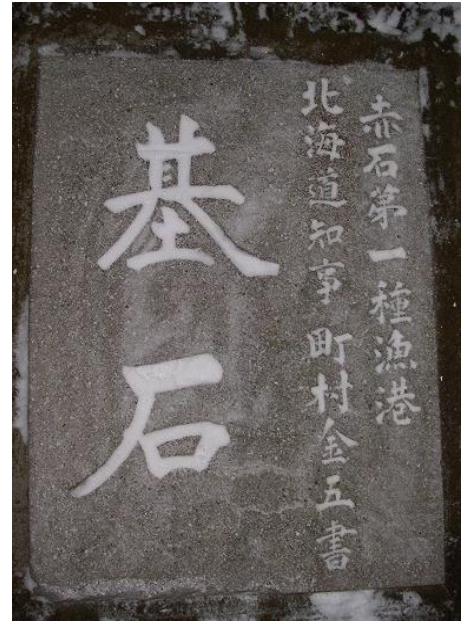 赤石第一種漁港
北海道知事 町村金五書
基石